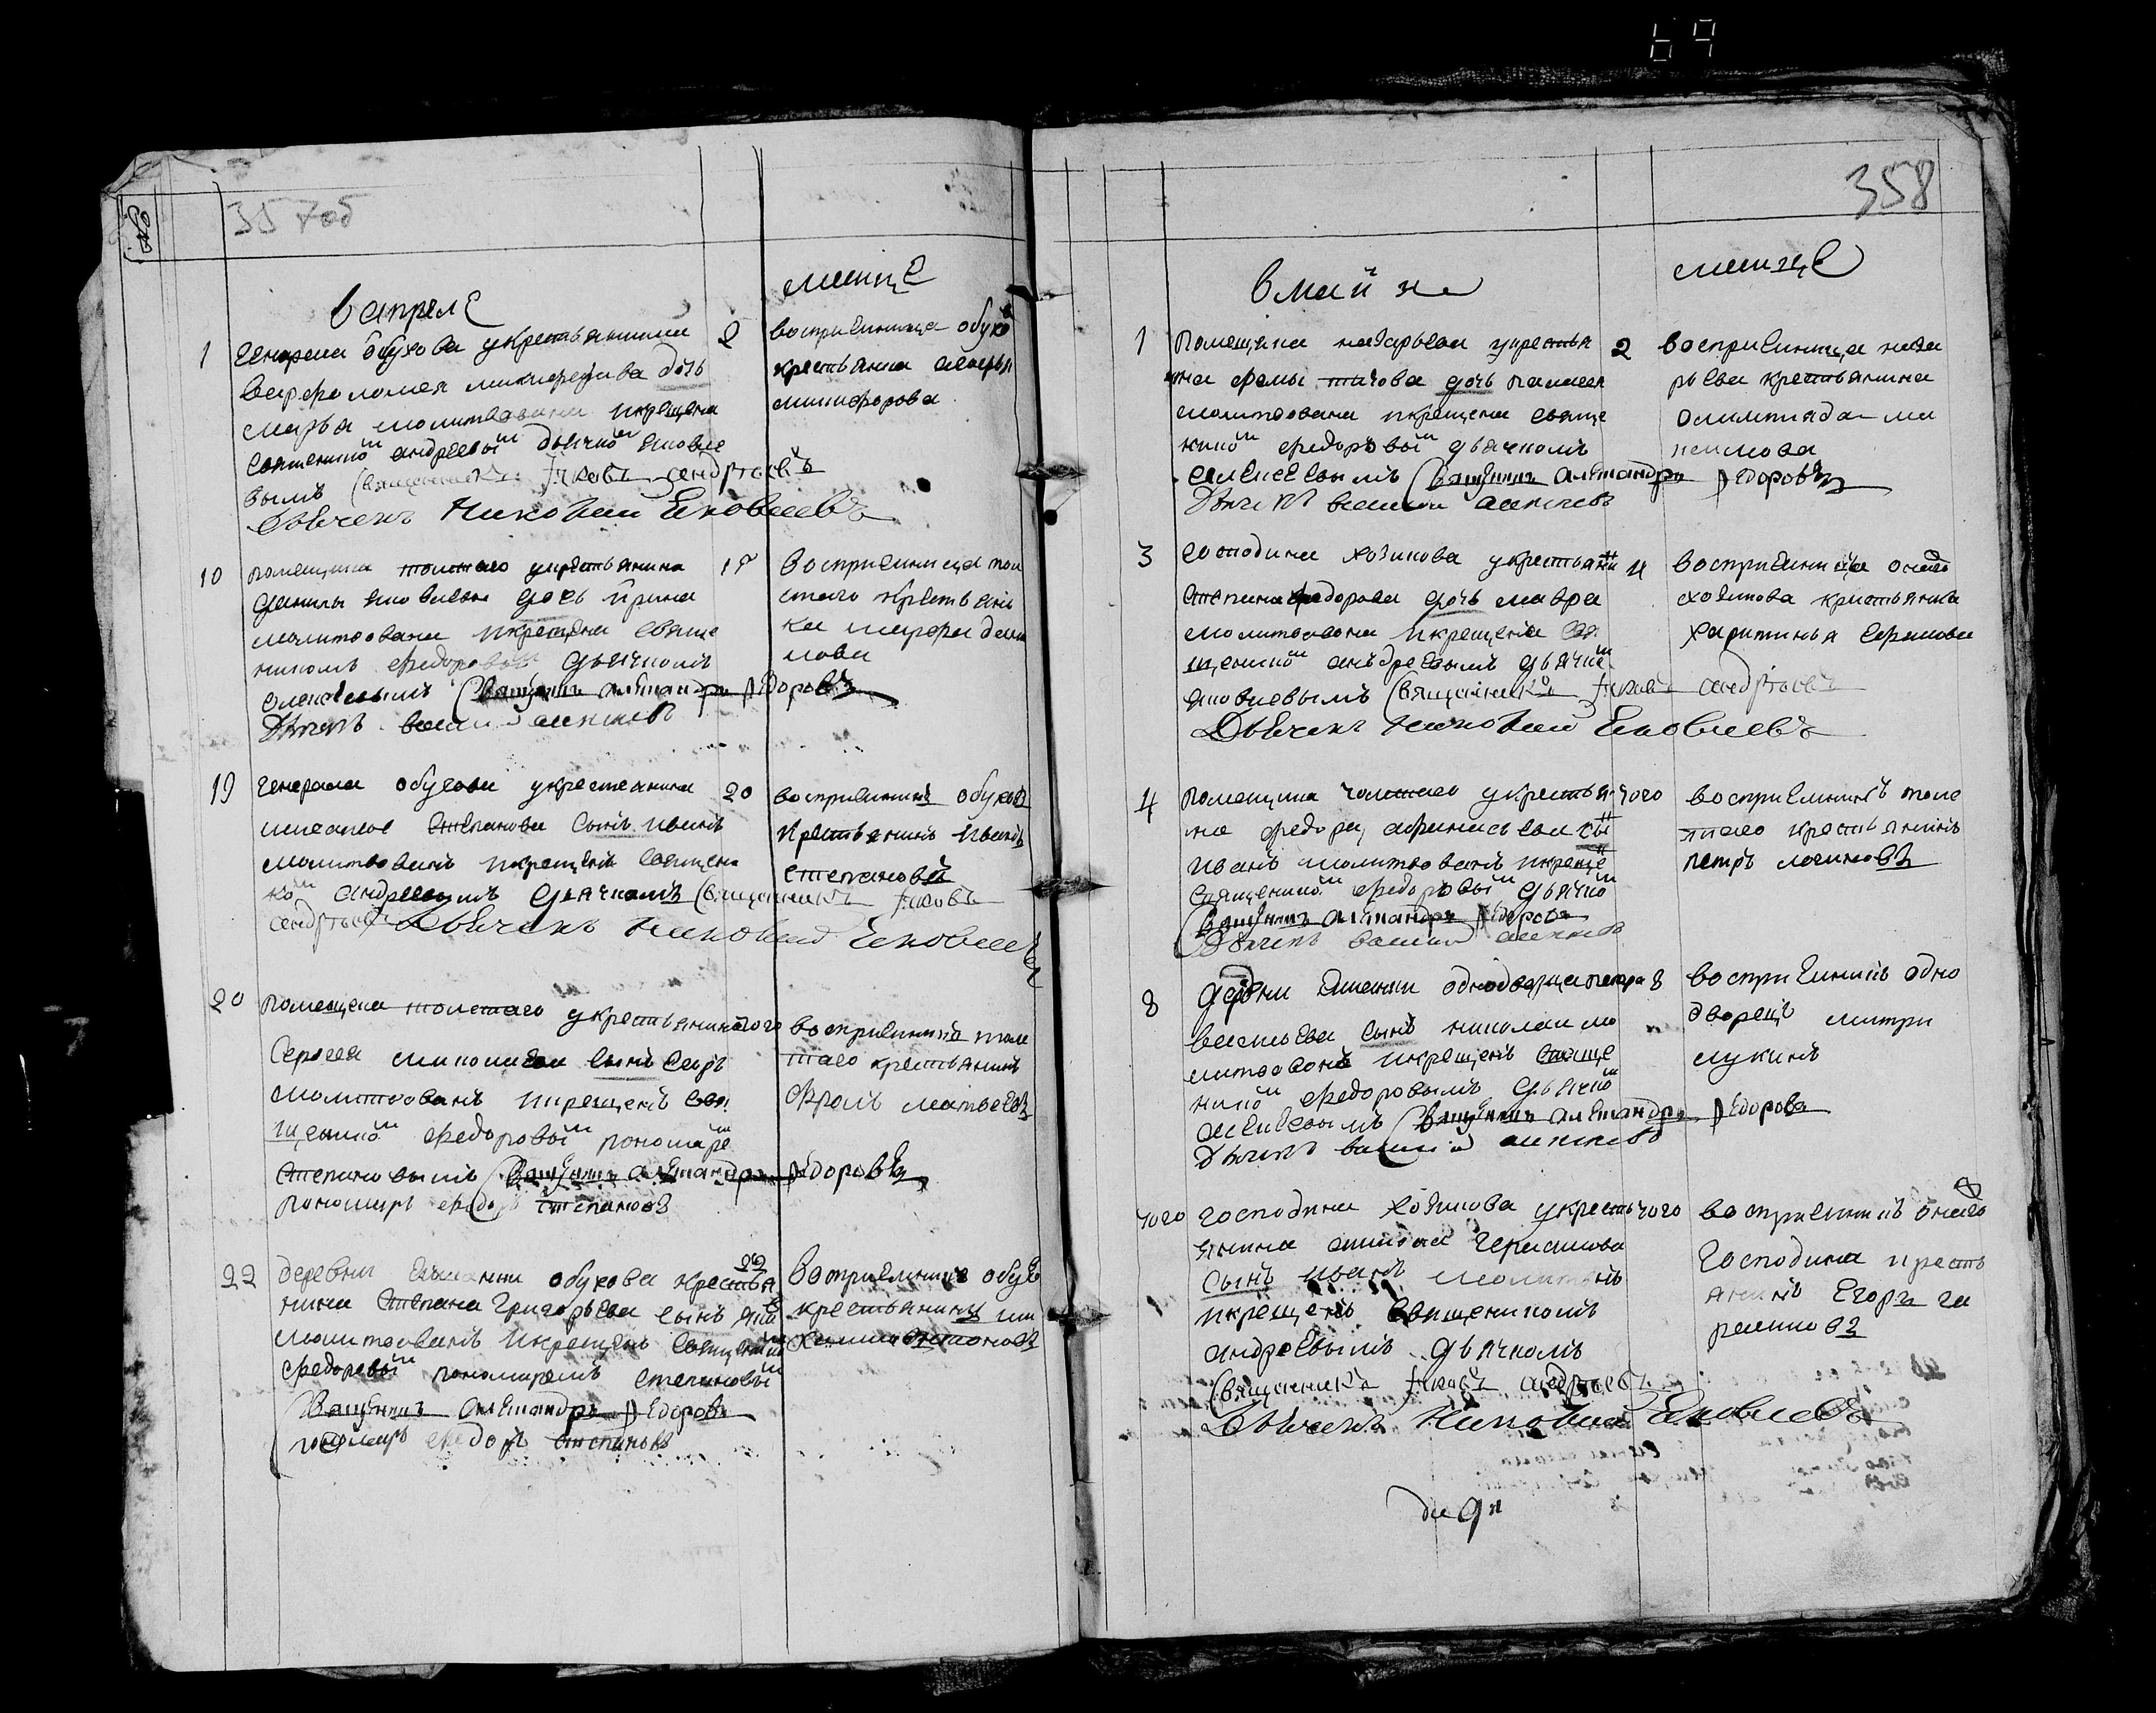 69
357об
в апреле
месяце
1
генерала обухова укрестьянина
варфоломея никифорова дочь
марья молитвована икрещена
священико андреевы дьячко яковле
вымъ священникъ Iаковъ андреевъ
Дьячекъ Николай Яковлевъ
2
восприемница обухо
крестьянина
никифорова
10
помещика толстаго укрестьянина
данилы яковлева дочь ирина
молитвована икрещена свяще
никомъ федоровы дьячкомъ
алексеевымъ Священникъ александръ Федоровъ
Дьячекъ василий алексеевъ
восприемница тол
стаго крестьянин
ка марфа дани
лова
19
генерала обухова укрестьянина
степанова сынъ иванъ
молитвованъ икрещенъ священ
ко андреевымъ дьячкомъ священникъ Iаковъ
андреевъ Дьячекъ Николай Яковлевъ
20
восприемникъ обухова
крестьянинъ иванъ
степановъ
20
помещика толстаго укрестьянина
сергея николаева сынъ
молитвованъ икрещенъ свя
щенико федоровы пономаре
степановымъ Священникъ александръ Федоровъ
пономарь федоръ степановъ
того
восприемникъ тол
стаго крестьянинъ
фролъ матвеевъ
22
деревни обухова крестья
нина степана григорьева сынъ
молитвованъ икрещенъ священико
федоровы пономаремъ степановы
Священникъ александръ Федоровъ
пономарь федоръ степановъ
22
восприемникъ обухо
крестьянинъ ми
хаила антоновъ
358
в майи
месяце
1
помещика назарьева укрестья
нина фомы титова дочь пелагея
молитвована икрещена свяще
нико федоровы дьячкомъ
алексеевымъ Священникъ александръ Федоровъ
Дьячекъ василий алексеевъ
2
восприемница наза
рьева крестьянина
олимпиада ма
ксимова
3
господина хозикова укрестьянин
степана федорова дочь мавра
молитвована икрещена свя
щенико андреевымъ дьячко
яковлевымъ священникъ Iаковъ андреевъ
Дьячекъ Николай Яковлевъ
4
восприемница онаго
хозикова крестьянка
харитинья ефимова
4
помещика толстаго укрестья
на федора афанасьева сы
иванъ молитвованъ икреще
священико федоровы дьячко
Священникъ александръ Федоровъ
Дьячекъ василий алексеевъ
того
восприемникъ тол
стаго крестьянинъ
петръ логиновъ
8
деревни однодворца петра
васильева сынъ николай мо
литвованъ икрещенъ свяще
нико федоровымъ дьячко
алексеевымъ Священникъ александръ Федоровъ
Дьячекъ василий алексеевъ
8
восприемникъ одно
дворецъ митри
лукинъ
того
господина хозикова укресть
янина герасимова
сынъ иванъ молитванъ
икрещенъ священикомъ
андреевымъ дьячкомъ
священникъ Iаковъ андреевъ
Дьячекъ Николай Яковлевъ
того
восприемникъ онаго
господина кресть
янинъ егоръ ге
расимовъ